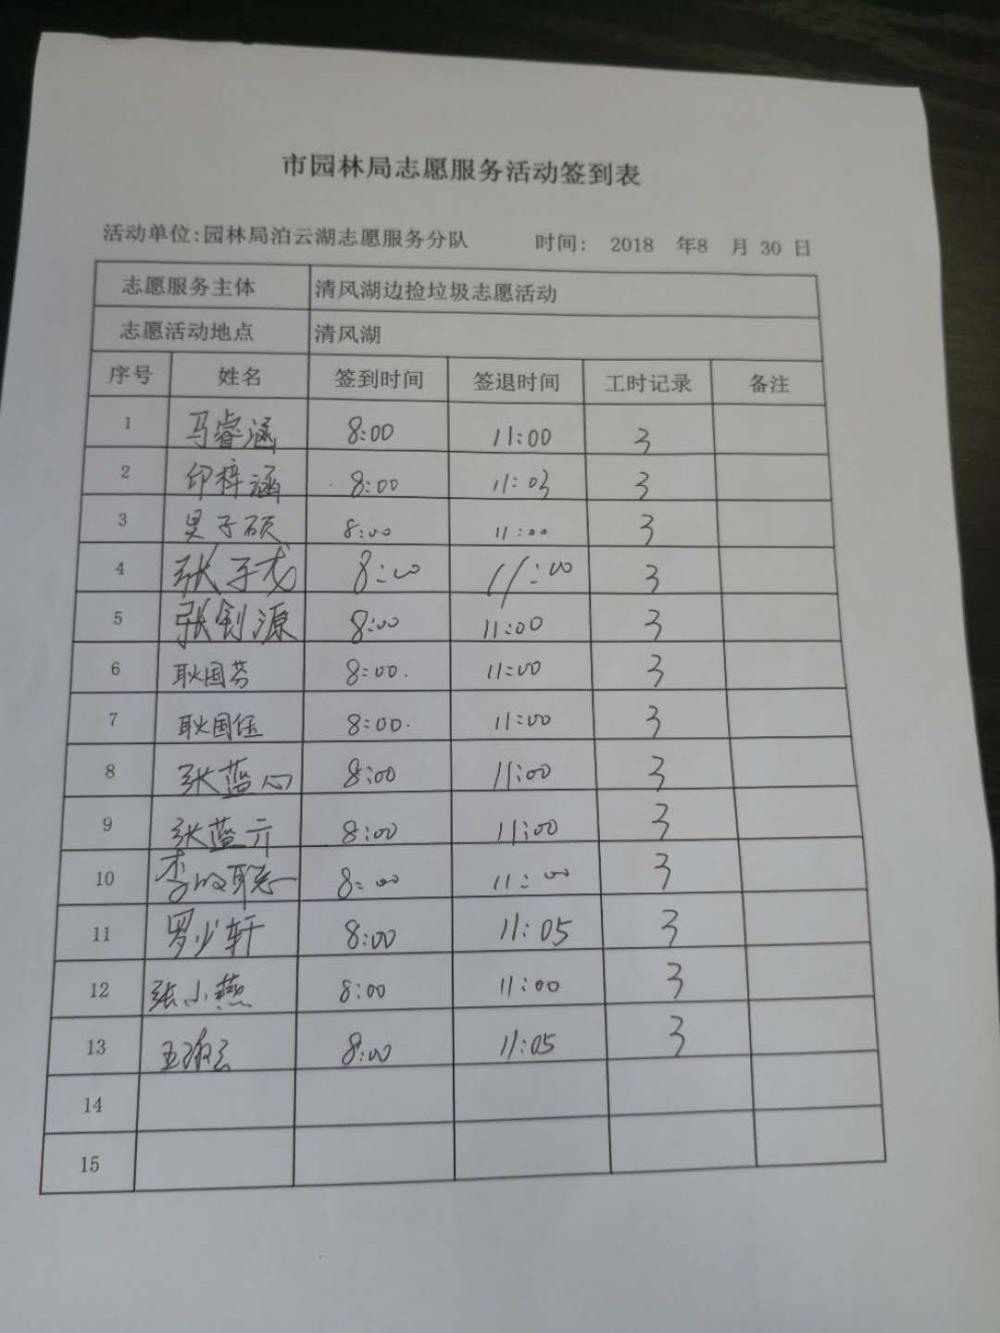 市园林局志愿服务活动签到表
活动单位:园林局泊云湖志愿服务分队 时间: 2018 年8 月 30 日
志愿服务主体 清风湖边捡垃圾志愿活动
志愿活动地点 清风湖
序号 姓名 签到时间 签退时间 工时记录 备注
1 马睿涵 8:00 11:00 3
2 印梓涵 8:00 11:03 3
3 吴子硕 8:00 11:00 3
4 张子戈 8:00 11:00 3
5 张钊源 8:00 11:00 3
6 耿国芬 8:00. 11:00 3
7 耿国伍 8:00. 11:00 3
8 张蓝心 8:00 11:00 3
9 张蓝亓 8:00 11:00 3
10 李 聪 8:00 11:00 3
11 罗少轩 8:00 11:05 3
12 张小燕 8:00 11:00 3
13 8:00 11:05 3
14
15